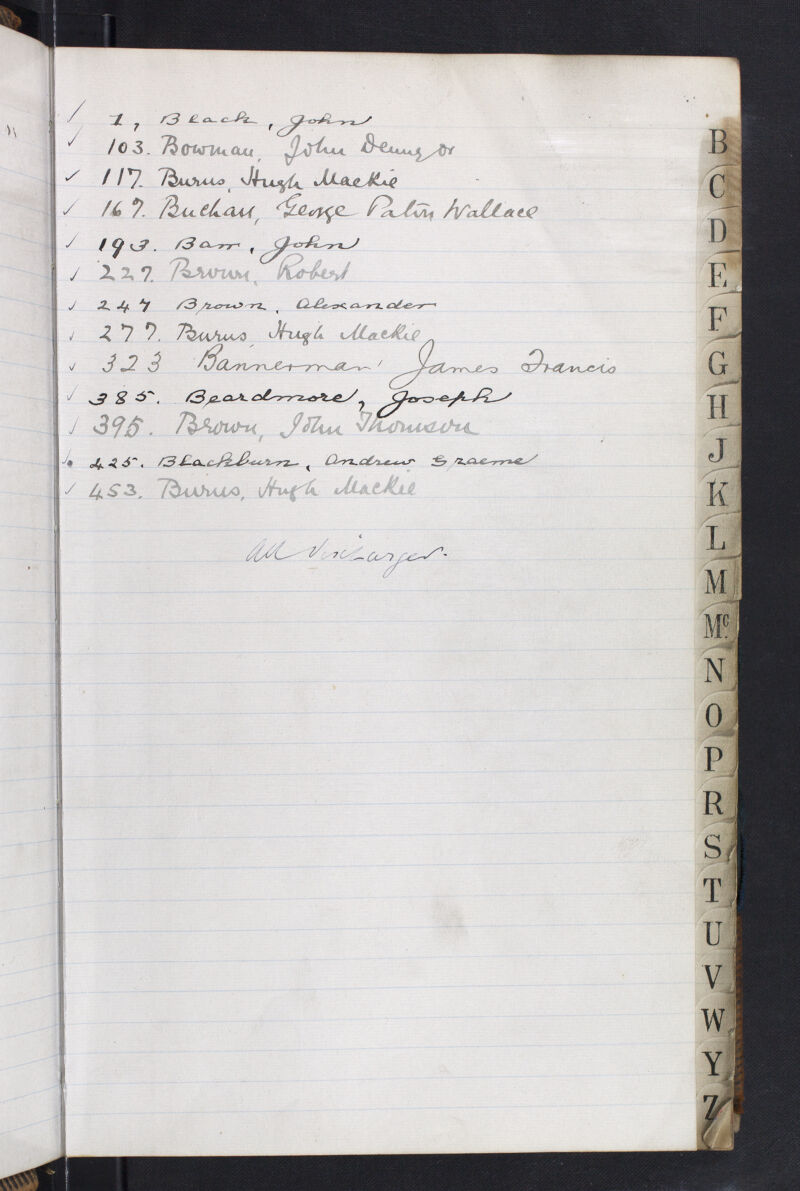 ✓ 1, Black, John
✓ 103. Bowman, John Denny or
✓ 117. Burns, Hugh Mackie
✓ 167. Buchan, George Paton Wallace
✓ 193. Barr, John
✓ 227. Brown, Robert
✓ 247 Brown, Alexander
✓ 277. Burns, Hugh Mackie
✓ 323 Bannerman, James Francis
✓ 385. Beardmore, Joseph
✓ 395. Brown, John Thomson
425. Blackburn, Andrew Graeme
✓ 453. Burns, Hugh Mackie
All discharged.
B
C
D
E
F
G
H
J
K
L
M
Mc.
N
O
P
R
S
T
U
V
W
Y
Z